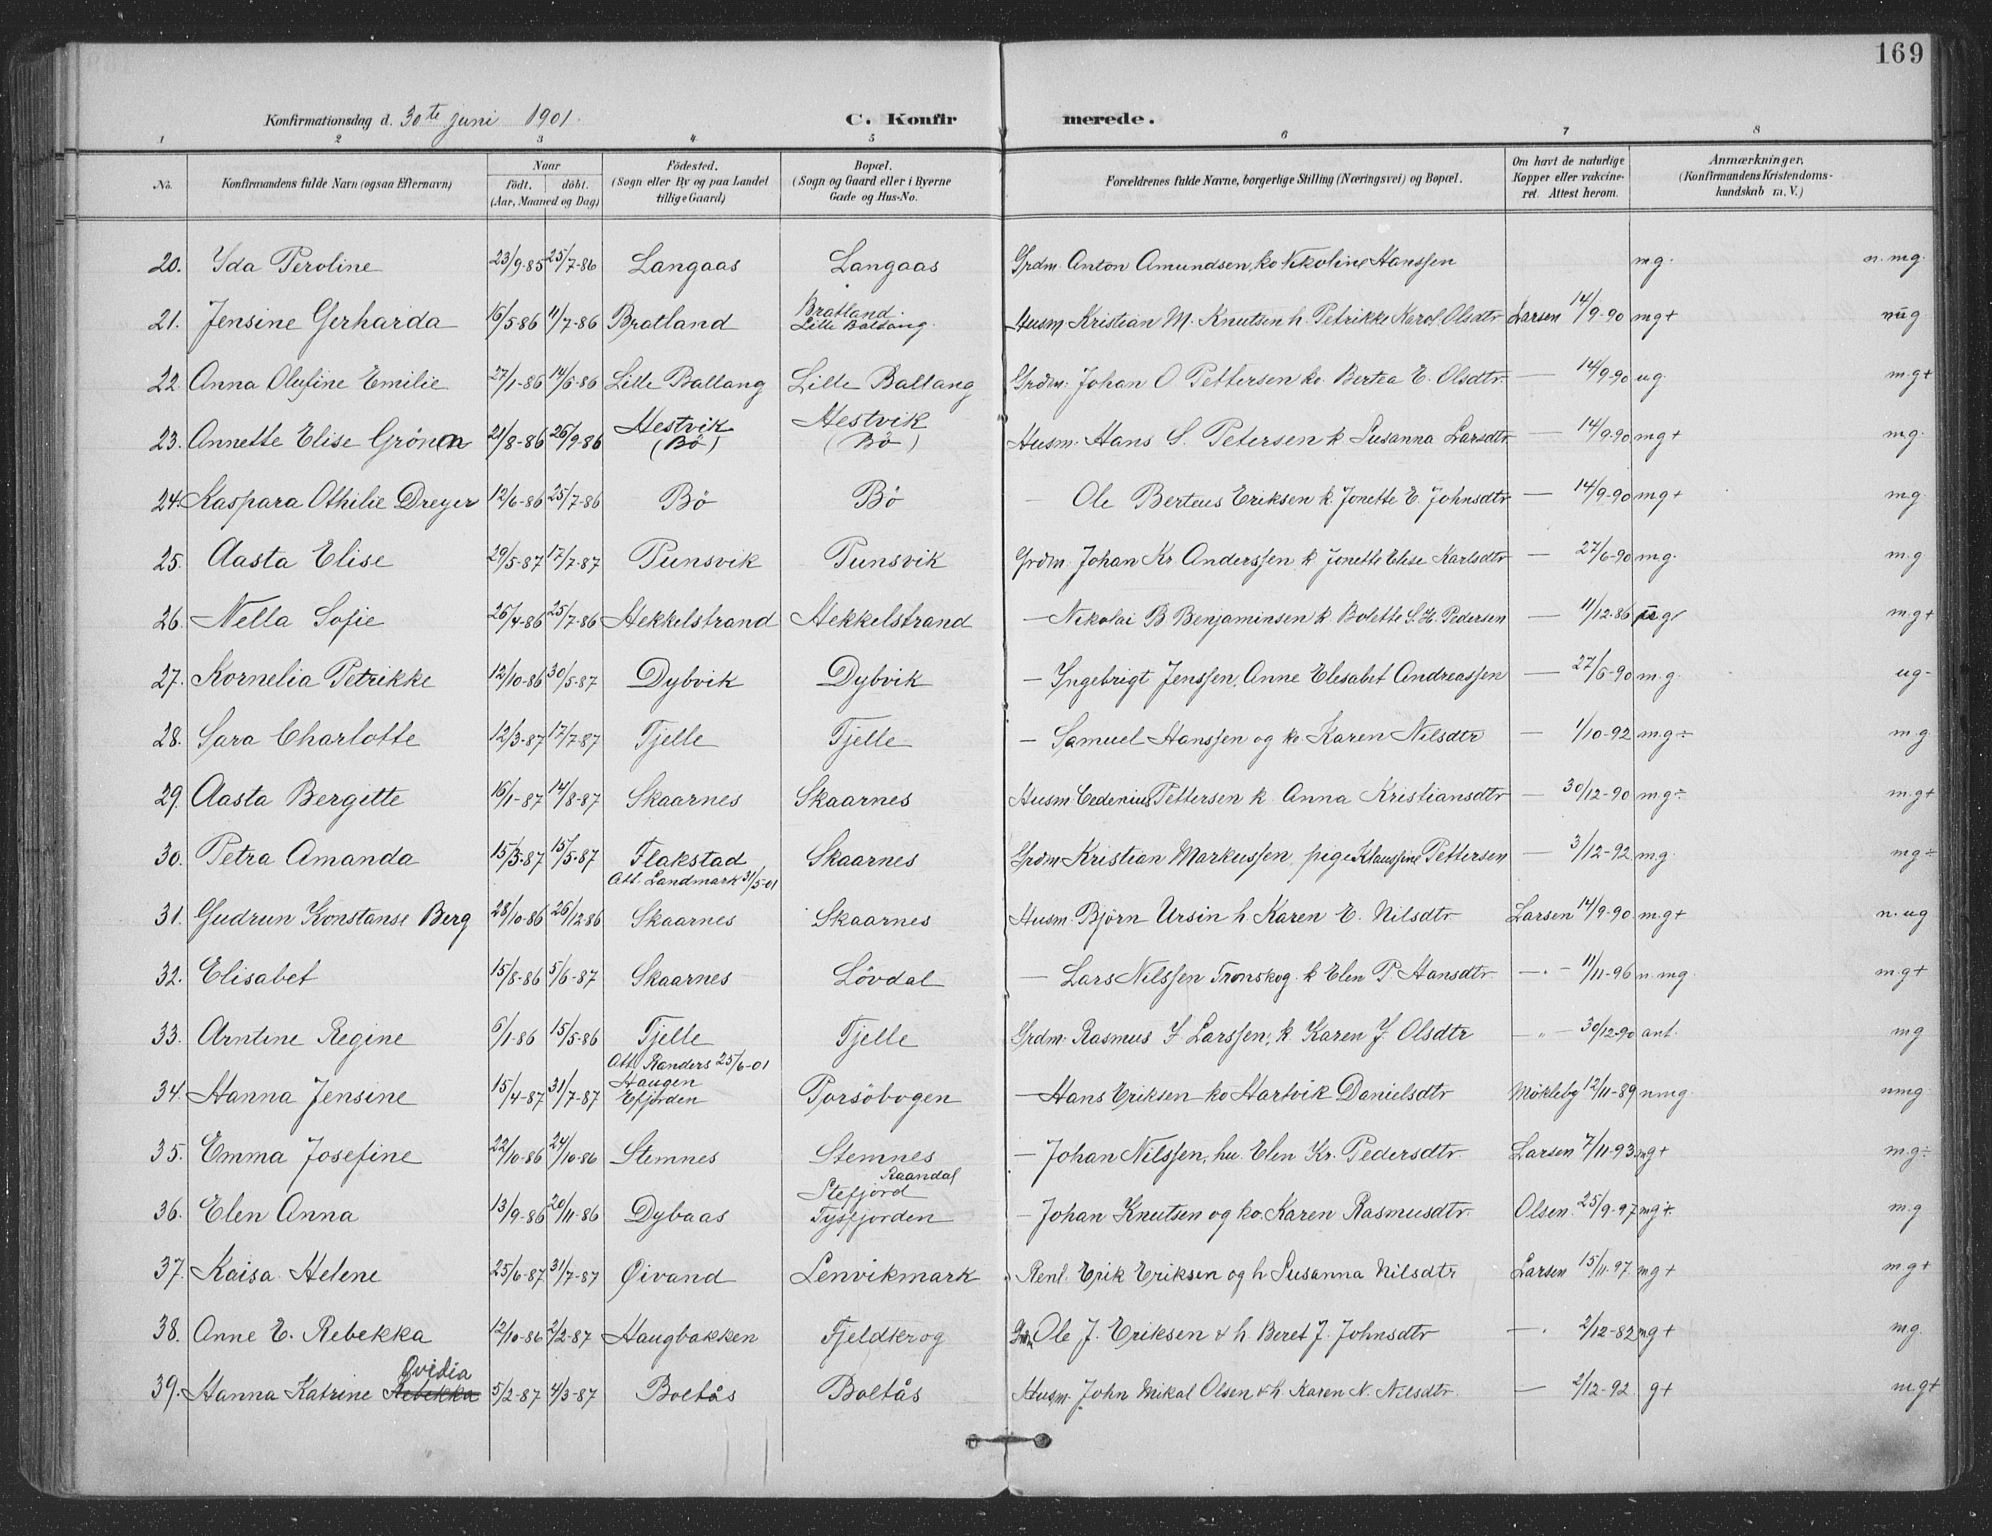 169
Konfirmationsdag d. 30te juni 1901. C. Konfirmerede.
1 2 3 4 5 6 7 8
No. Konfirmandens fulde Navn (ogsaa Efternavn) Naar født. døbt. (Aar, Maaned og Dag) Fødested. (Sogn eller By og paa Landet tillige Gaard) Bopæl. (Sogn og Gaard eller i Byerne Gade og Hus-No. Forældrenes fulde Navne, borgerlige Stilling (Næringsvei) og Bopæl. Om havt de naturlige Kopper eller vakcineret. Attest herom. Anmærkninger. (Konfirmandens Kristendomskundskab m. V.)
20. Ida Peroline 23/9-85 25/7-86 Langaas Langaas Grdm. Anton Amundsen, ko Nikoline Hanssen mg. n. mg.
21. Jensine Gerharda 16/5-86 11/7-86 Bratland Bratland. Lille Baltang. Husm. Kristian M. Knutsen h. Petrikke Karol. Olsdtr Larsen 14/9-90 mg+ mg
22. Anna Olufine Emilie 27/1-86 14/6-86 Lille Ballang Lille Ballang Grdm. Johan O. Pettersen ko. Bertea E. Olsdtr. — 14/9-90 ug. m.g+
23. Annette Elise Grönn 21/8-86 26/9-86 Hestvik (Bö) Hestvik (Bö) Husm. Hans S. Petersen k. Susanna Larsdtr — 14/9-90 mg+ m.g.
24. Kaspara Othilie Dreyer 12/6-86 25/7-86 Bö Bö — Ole Berteus Eriksen k. Jonette E. Johnsdtr — 14/9-90 mg+ m.g.
25. Aasta Elise 29/5-87 17/7-87 Punsvik Punsvik Grdm. Johan Kr. Anderssen k. Jonette Elise Karlsdtr — 27/6-90 m.g. m.g
26. Nella Sofie 26/4-86 25/7-86 Hekkelstrand Hekkelstrand — Nikolai B Benjaminsen k. Bolette S. H. Pedersen — 11/12-86 ug m.g+
27. Kornelia Petrikke 12/10-86 30/5-87 Dybvik Dybvik — Ingebrigt Jenssen, Anne Elesabet Andreassen — 27/6-90 m.g. ug-
28. Sara Charlotte 12/3-87 17/7-87 Tjelle Tjelle — Samuel Hanssen og ko Karen Nilsdtr — 1/10-92 m.g÷ m.g
29. Aasta Bergitte 16/1-87 14/8-87 Skaarnes Skaarnes Husm. Cedenius Pettersen k. Anna Kristiansdtr — 30/12-90 m.g÷ m.g+
30. Petra Amanda 15/3-87 15/5-87 Flakstad Att. Landmark 31/5-01 Skaarnes Grdm Kristian Markussen, pige Klaussine Pettersen — 3/12-92 m.g. mg÷
31. Gudrun Konstanse Berg 28/10-86 26/12-86 Skaarnes Skaarnes Husm. Björn Ursin h. Karen E. Nilsdtr Larsen 14/9-90 m.g+ n. ug
32. Elisabet 15/8-86 5/6-87 Skaarnes Lövdal — Lars Nilssen Tronskog. k Elen P. Hansdtr. — " — 11/11-96 n.mg. m.g+
33. Arntine Regine 6/1-86 15/5-86 Tjelle Tjelle Grdm. Rasmus J Larssen, k. Karen J. Olsdtr — " — 30/12-90 ant. mg
34. Hanna Jensine 15/4-87 31/7-87 Att. Randers 25/6-01 Haugen Efjorden Porsöbogen — Hans Eriksen ko Hartvik Danielsdtr Mökleby 12/11-89 nmg. nmg
35. Emma Josefine 22/10-86 24/10-86 Stemnes Stemnes — Johan Nilssen, hu. Elen Kr. Pedersdtr. Larsen 7/11-93 mg+ m.g÷
36. Elen Anna 13/9-86 20/11-86 Dybaas Raandal Stefjord Tysfjorden — Johan Knutsen og ko. Karen Rasmusdtr. Olsen. 25/9-97 mg÷ m.g
37. Kaisa Helene 25/6-87 31/7-87 Øivand Lenvikmark Renl. Erik Eriksen og h Susanna Nilsdtr Larsen 15/11-97 mg+ m g+
38. Anne E. Rebekka 12/10-86 2/2-87 Haugbakken Fjeldkrog Grdm Ole J. Eriksen & h. Beret J. Johnsdtr — . 2/12-82 mg+ m.g.
39. Hanna Katrine Rebekka Ovidia 5/2-87 4/3-87 Boltås Boltås Husm. John Mikal Olsen & h. Karen N. Nilsdtr. — 2/12-92 g+ m.g+